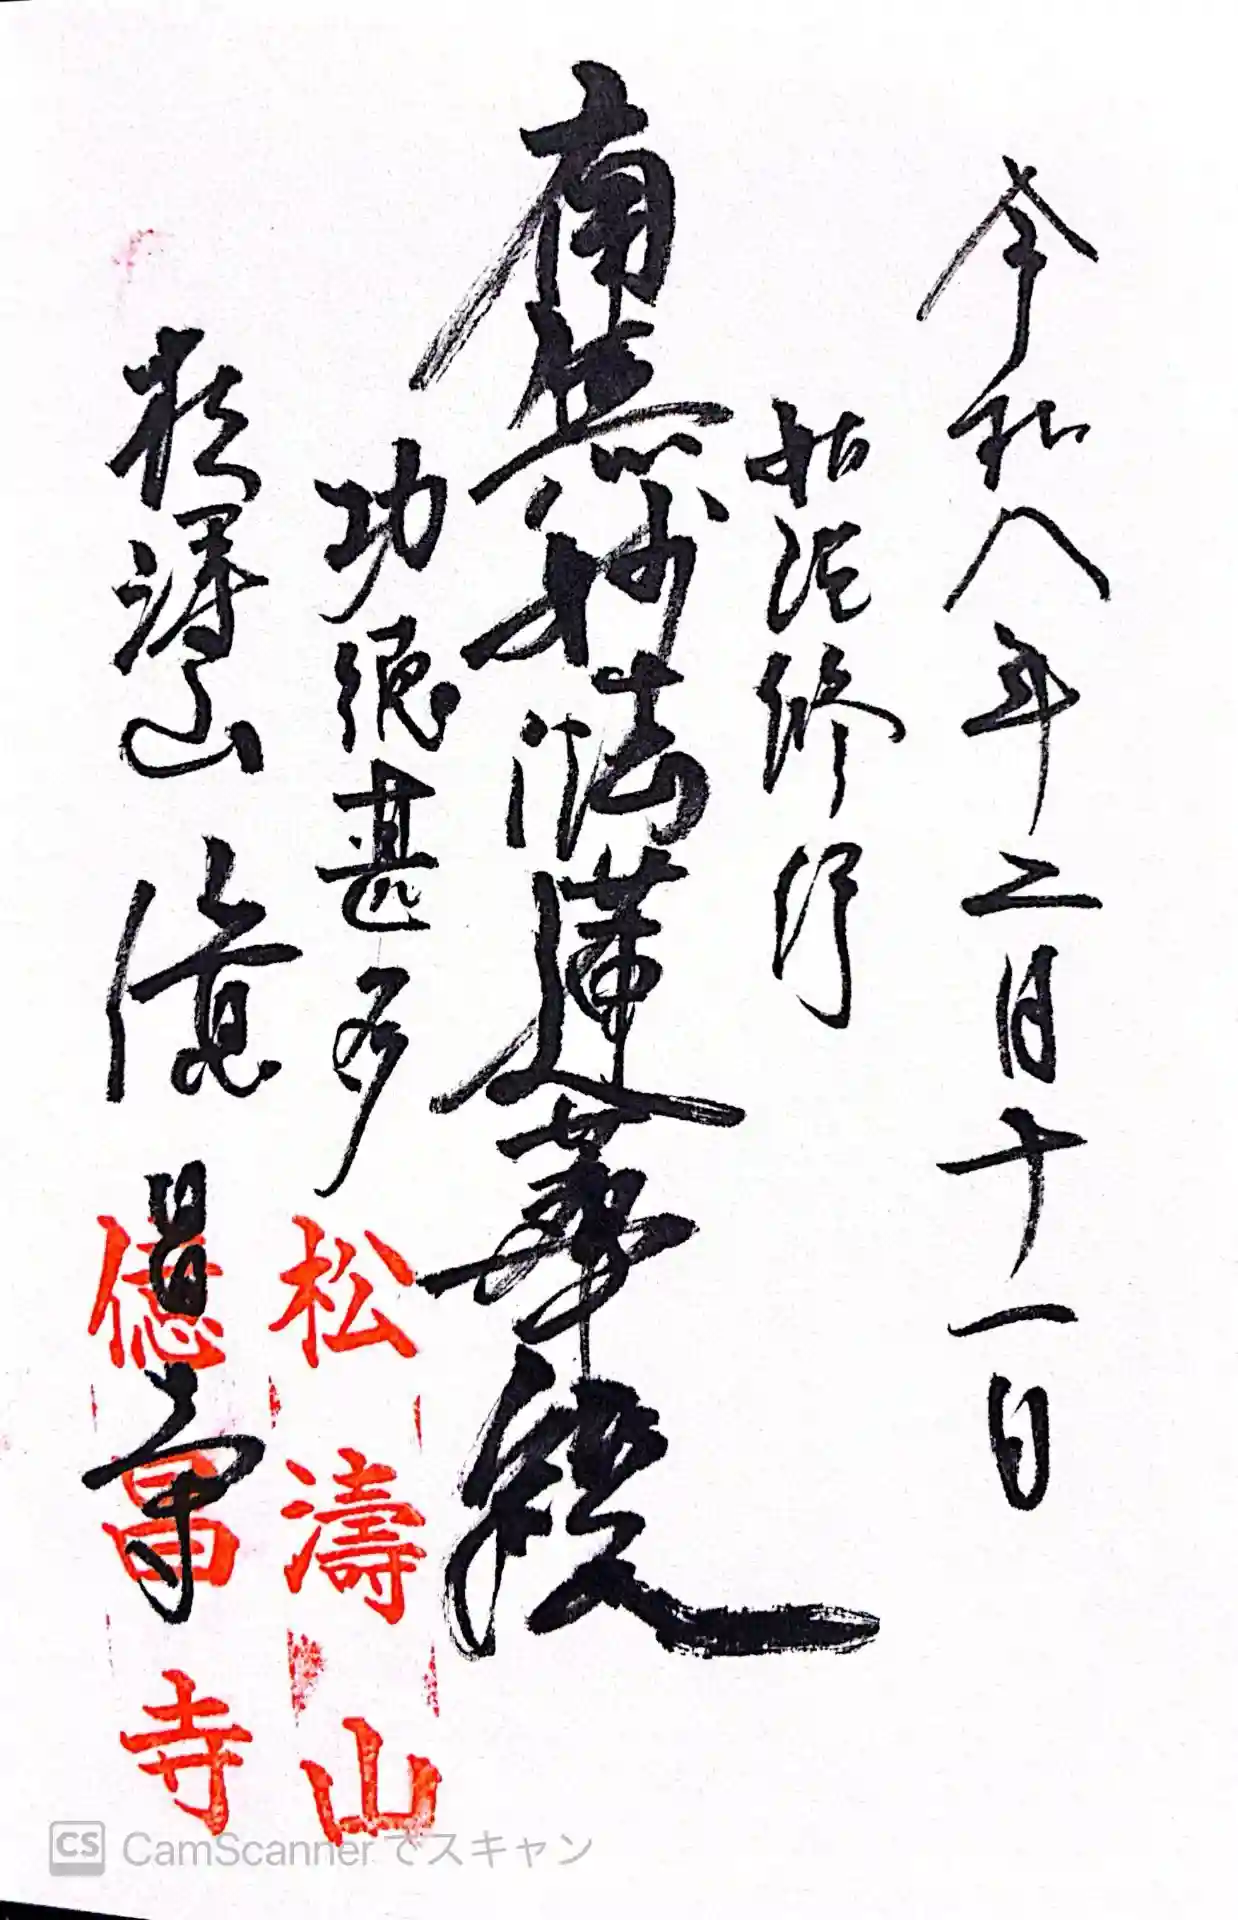 令和八年二月十一日
如説修行
南無妙法蓮華経
功徳甚多
松濤山 億昌寺
松濤山
億昌寺
CS CamScannerでスキャン